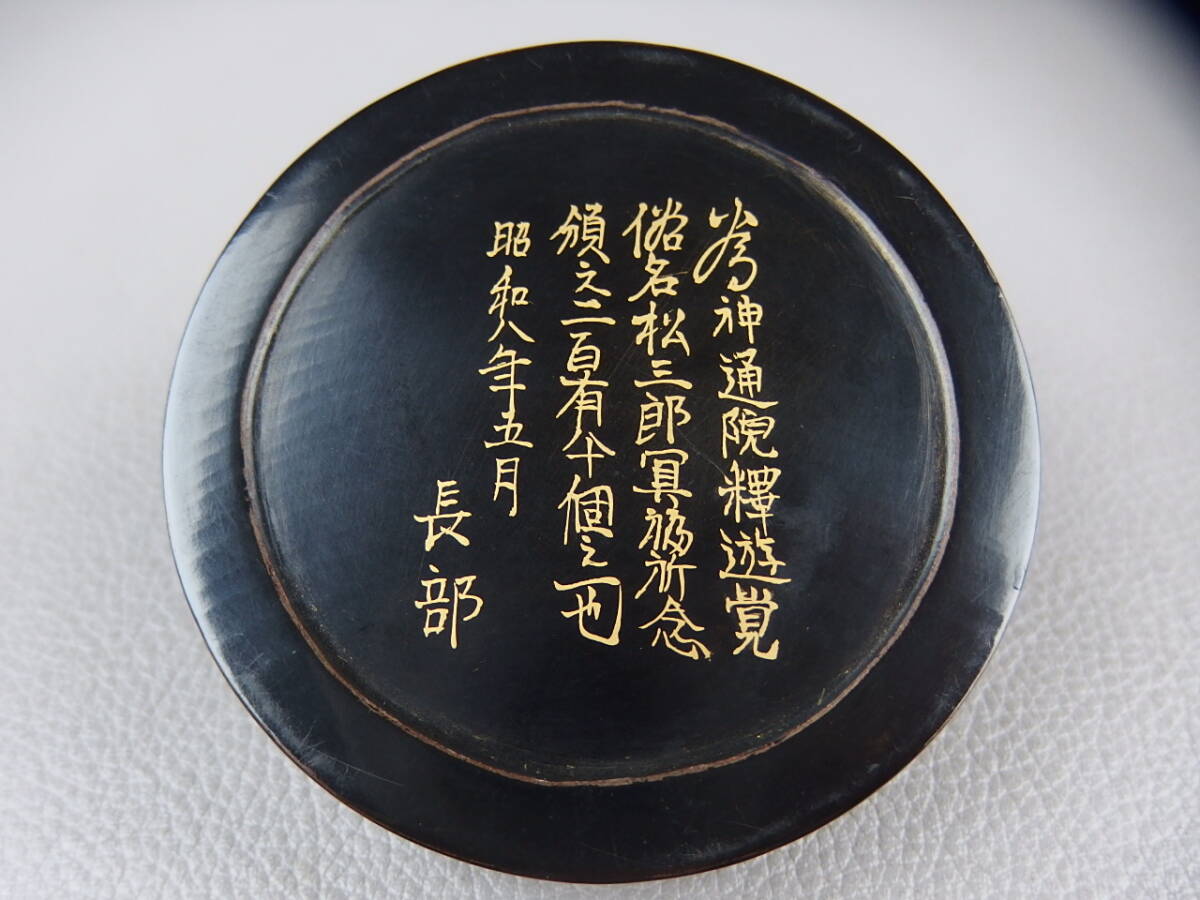 為神通院釋遊覚
俗名松三郎冥福祈念
頒之二百有八十個之一也
昭和八年五月
長部